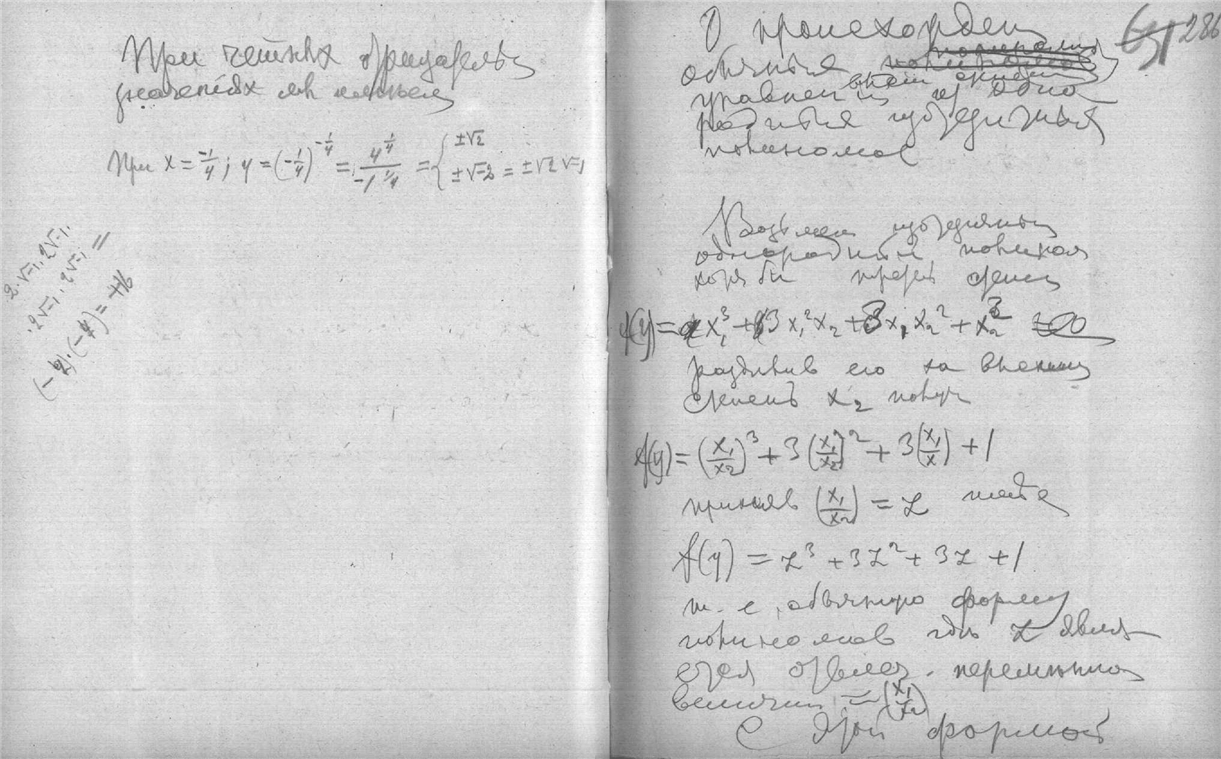 При четных отрицательн
значениях мы имеем
При x = -1/4; y = (-1/4)^{-1/4} = 4^{1/4}/-1^{1/4} = { ±√2
±√-2 = ±√2 √-1
2·√-1·2√-1·
·2√-1·2√-1 =
(-4)·(-4) = +16
286
О происхожден
обычных
уравнен из одно
родных
полиномов
Возьмем
однородный полином
хотя бы третьей степен
f(y) = x₁³ + 3x₁²x₂ + 3x₁x₂² + x₂³ = 0
разделив его на
степень x₂ получ
f(y) = (x₁/x₂)³ + 3(x₁/x₂)² + 3(x₁/x) + 1
приняв (x₁/x₂) = z тогда
f(y) = z³ + 3z² + 3z + 1
т. е. обычную форму
полиномов где z явля
ется переменною
величин = (x₁/x₂)
С этой формой